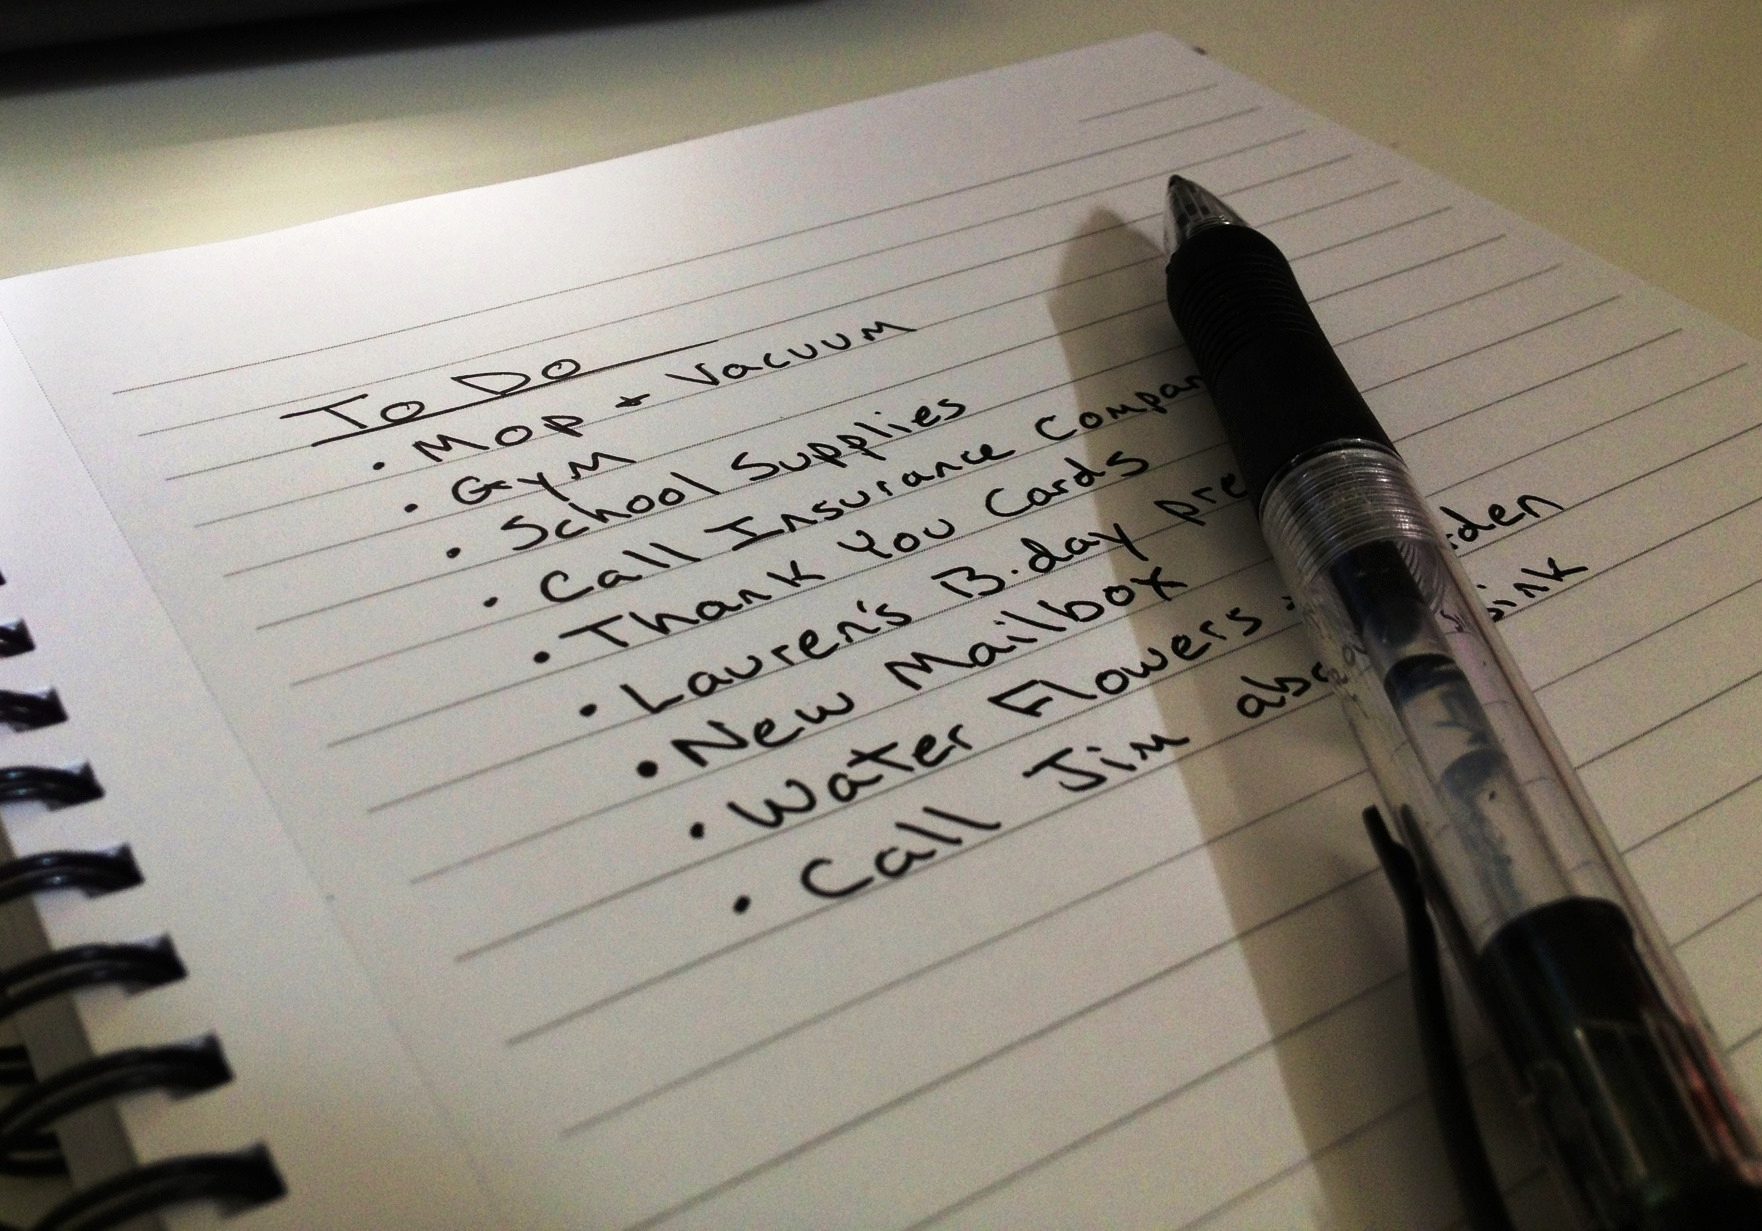 To Do
• Mop + Vacuum
• Gym
• School Supplies
• Call Insurance Compan
• Thank You Cards
• Lauren's B.day pre
• New Mailbox
• Water Flowers den
• Call Jim sink